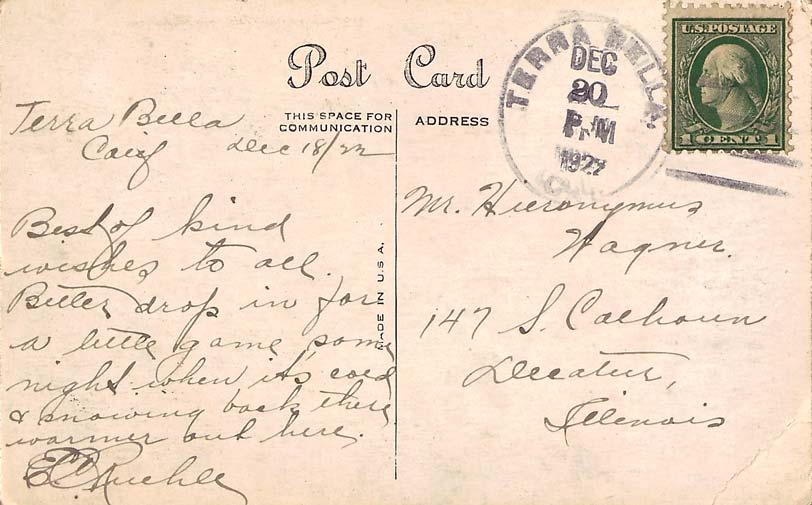 Post Card
THIS SPACE FOR
COMMUNICATION
ADDRESS
TERRA BELLA
DEC
20
P.M
1922
U.S. POSTAGE
1 CENT 1
Terra Bella
Calif Dec 18/22
Best of kind
wishes to all.
Better drop in for
a little game some
night when it's cold
& snowing back there
warmer out here.
MADE IN U.S.A.
Mr. Hieronymus
Wagner.
147 S. Calhoun
Decatur,
Illinois